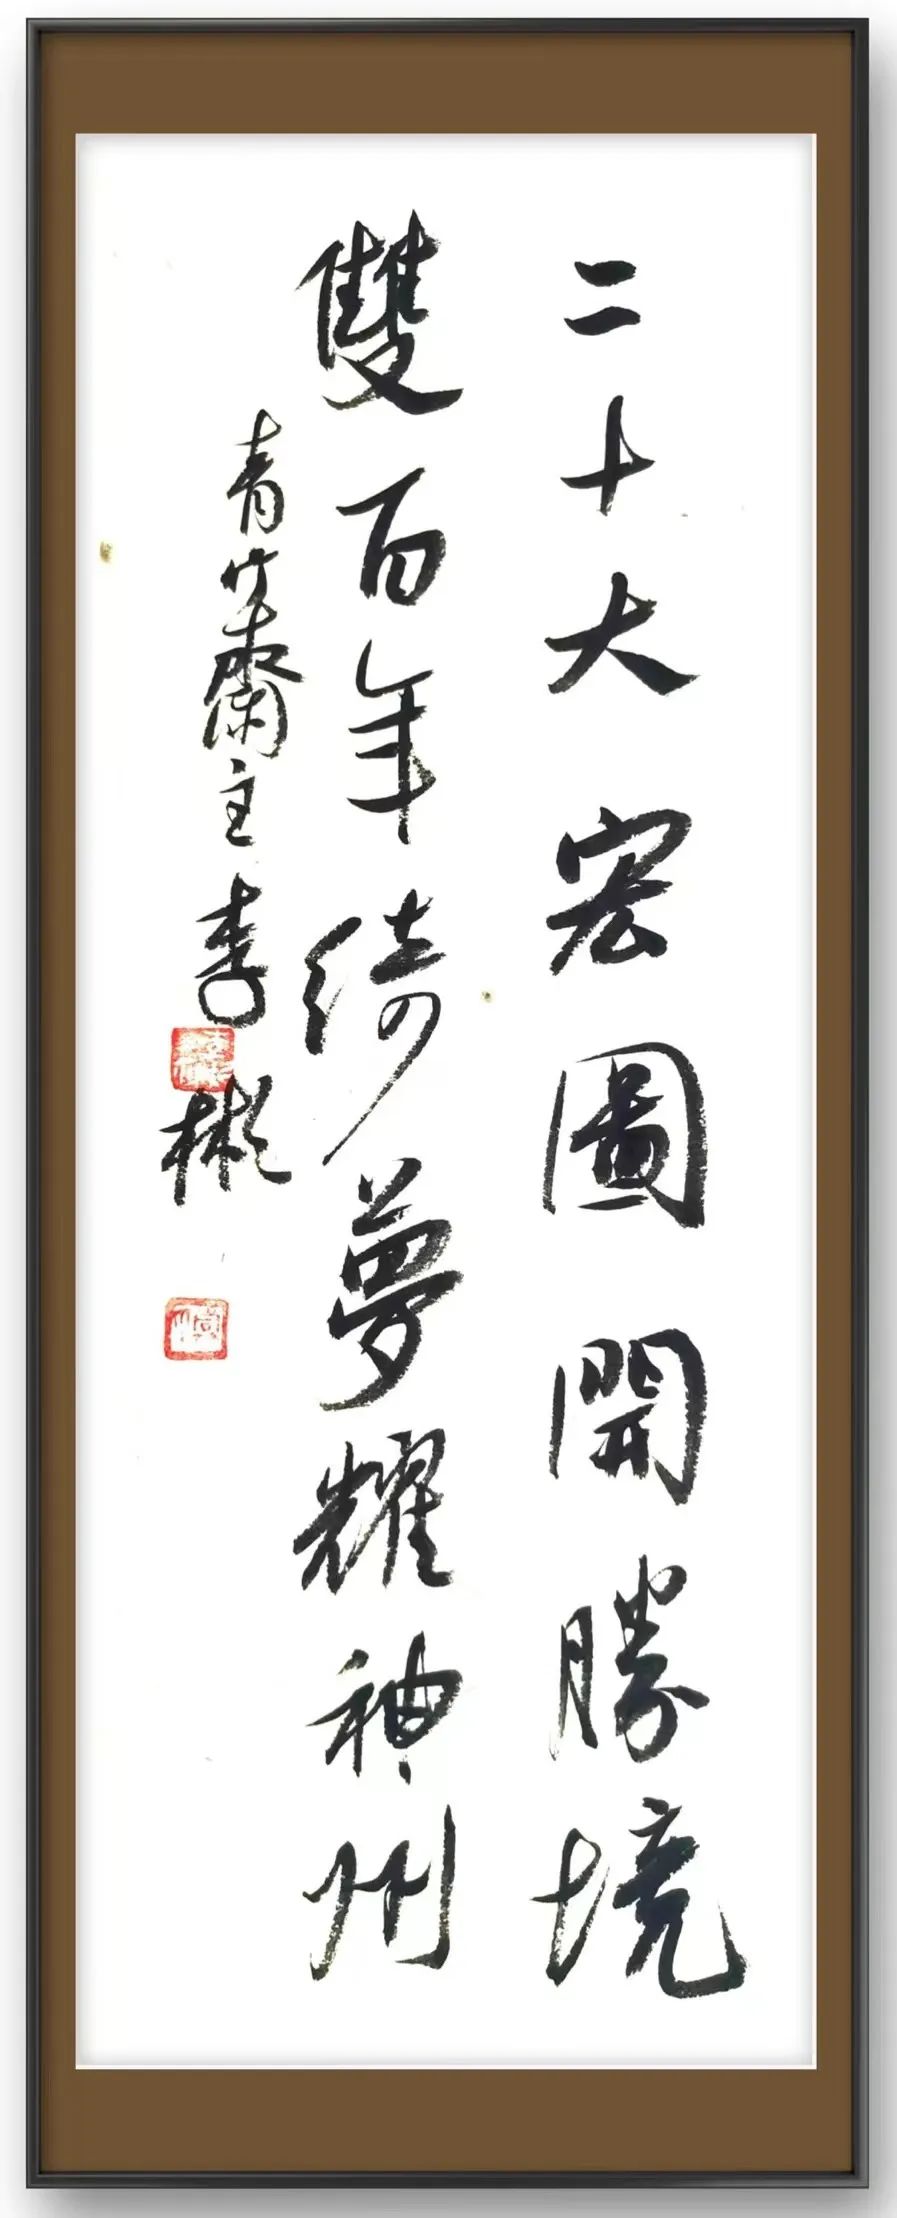 二十大宏圖開勝境
雙百年綺夢耀神州
青竹齋主李彬